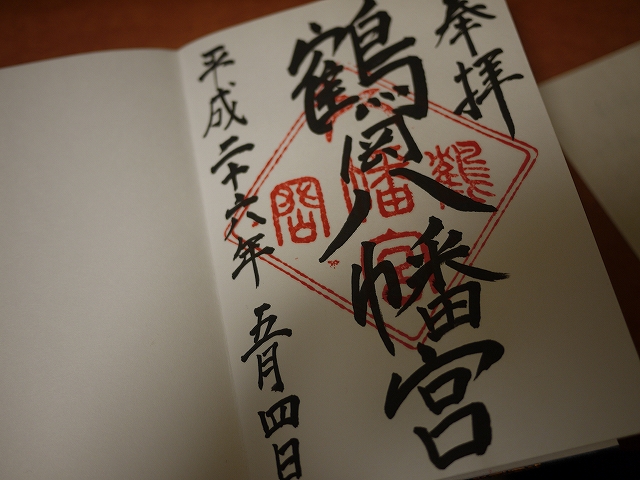 奉拝
鶴岡八幡宮
平成二十六年 五月四日
鶴岡
八幡宮